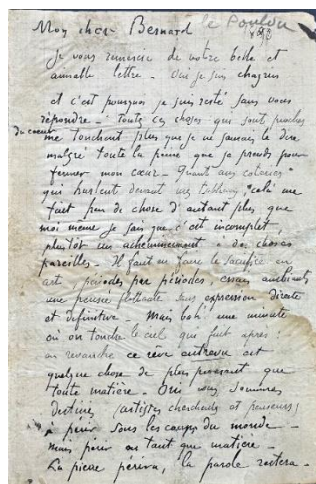 Mon cher Bernard le Pouldu
Je vous remercie de votre belle et
aimable lettre - Oui je suis chagrin
et c'est pourquoi je suis resté sans vous
répondre - Toutes ces choses qui sont proches
du coeur me touchent plus que je ne saurais le dire
malgré toute la peine que je prends pour
fermer mon coeur - Quant aux coteries
qui hurlent devant mes tableaux, cela me
fait peu de chose d'autant plus que
moi même je sais que c'est incomplet
plutot un acheminement à des choses
pareilles - Il faut en faire le sacrifice en
art, périodes par périodes, essais ambiants
une pensée flottante sans expression directe
et définitive. Mais bah! une minute
où on touche le ciel qui fuit après:
en revanche ce rêve entrevu est
quelque chose de plus puissant que
toute matière - Oui nous sommes
destinés (artistes chercheurs et penseurs)
à périr sous les coups du monde -
mais périr en tant que matière -
La pierre périra, la parole restera -